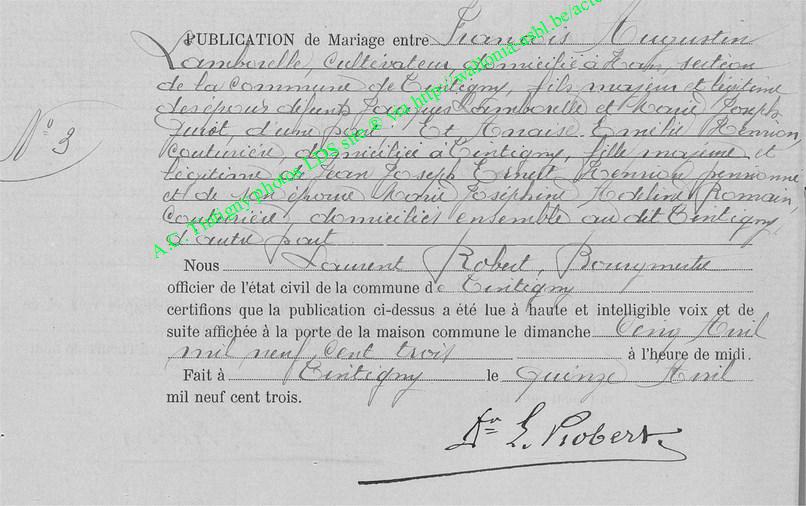 PUBLICATION de Mariage entre François Augustin
Lamborelle, Cultivateur, domicilié à Han, section
de la commune de Tintigny, fils majeur et légitime
des époux défunts Jacques Lamborelle et Marie Joseph
d'une part. Et Anaïse Emélie Hennon,
Couturière domiciliée à Tintigny, fille majeure et
légitime de Jean Joseph Ernest Hennon, pensionné
et de son épouse Marie Joséphine Adeline Romain,
Couturière, domiciliés ensemble au dit Tintigny
d'autre part.
N° 3
Nous Laurent Robert, Bourgmestre
officier de l'état civil de la commune de Tintigny
certifions que la publication ci-dessus a été lue à haute et intelligible voix et de
suite affichée à la porte de la maison commune le dimanche Cinq Avril
mil neuf cent trois à l'heure de midi.
Fait à Tintigny le Quinze Avril
mil neuf cent trois.
Dr L. Robert.
A.C. Tintigny photos LDS site © via http://wallonia-asbl.be/acte